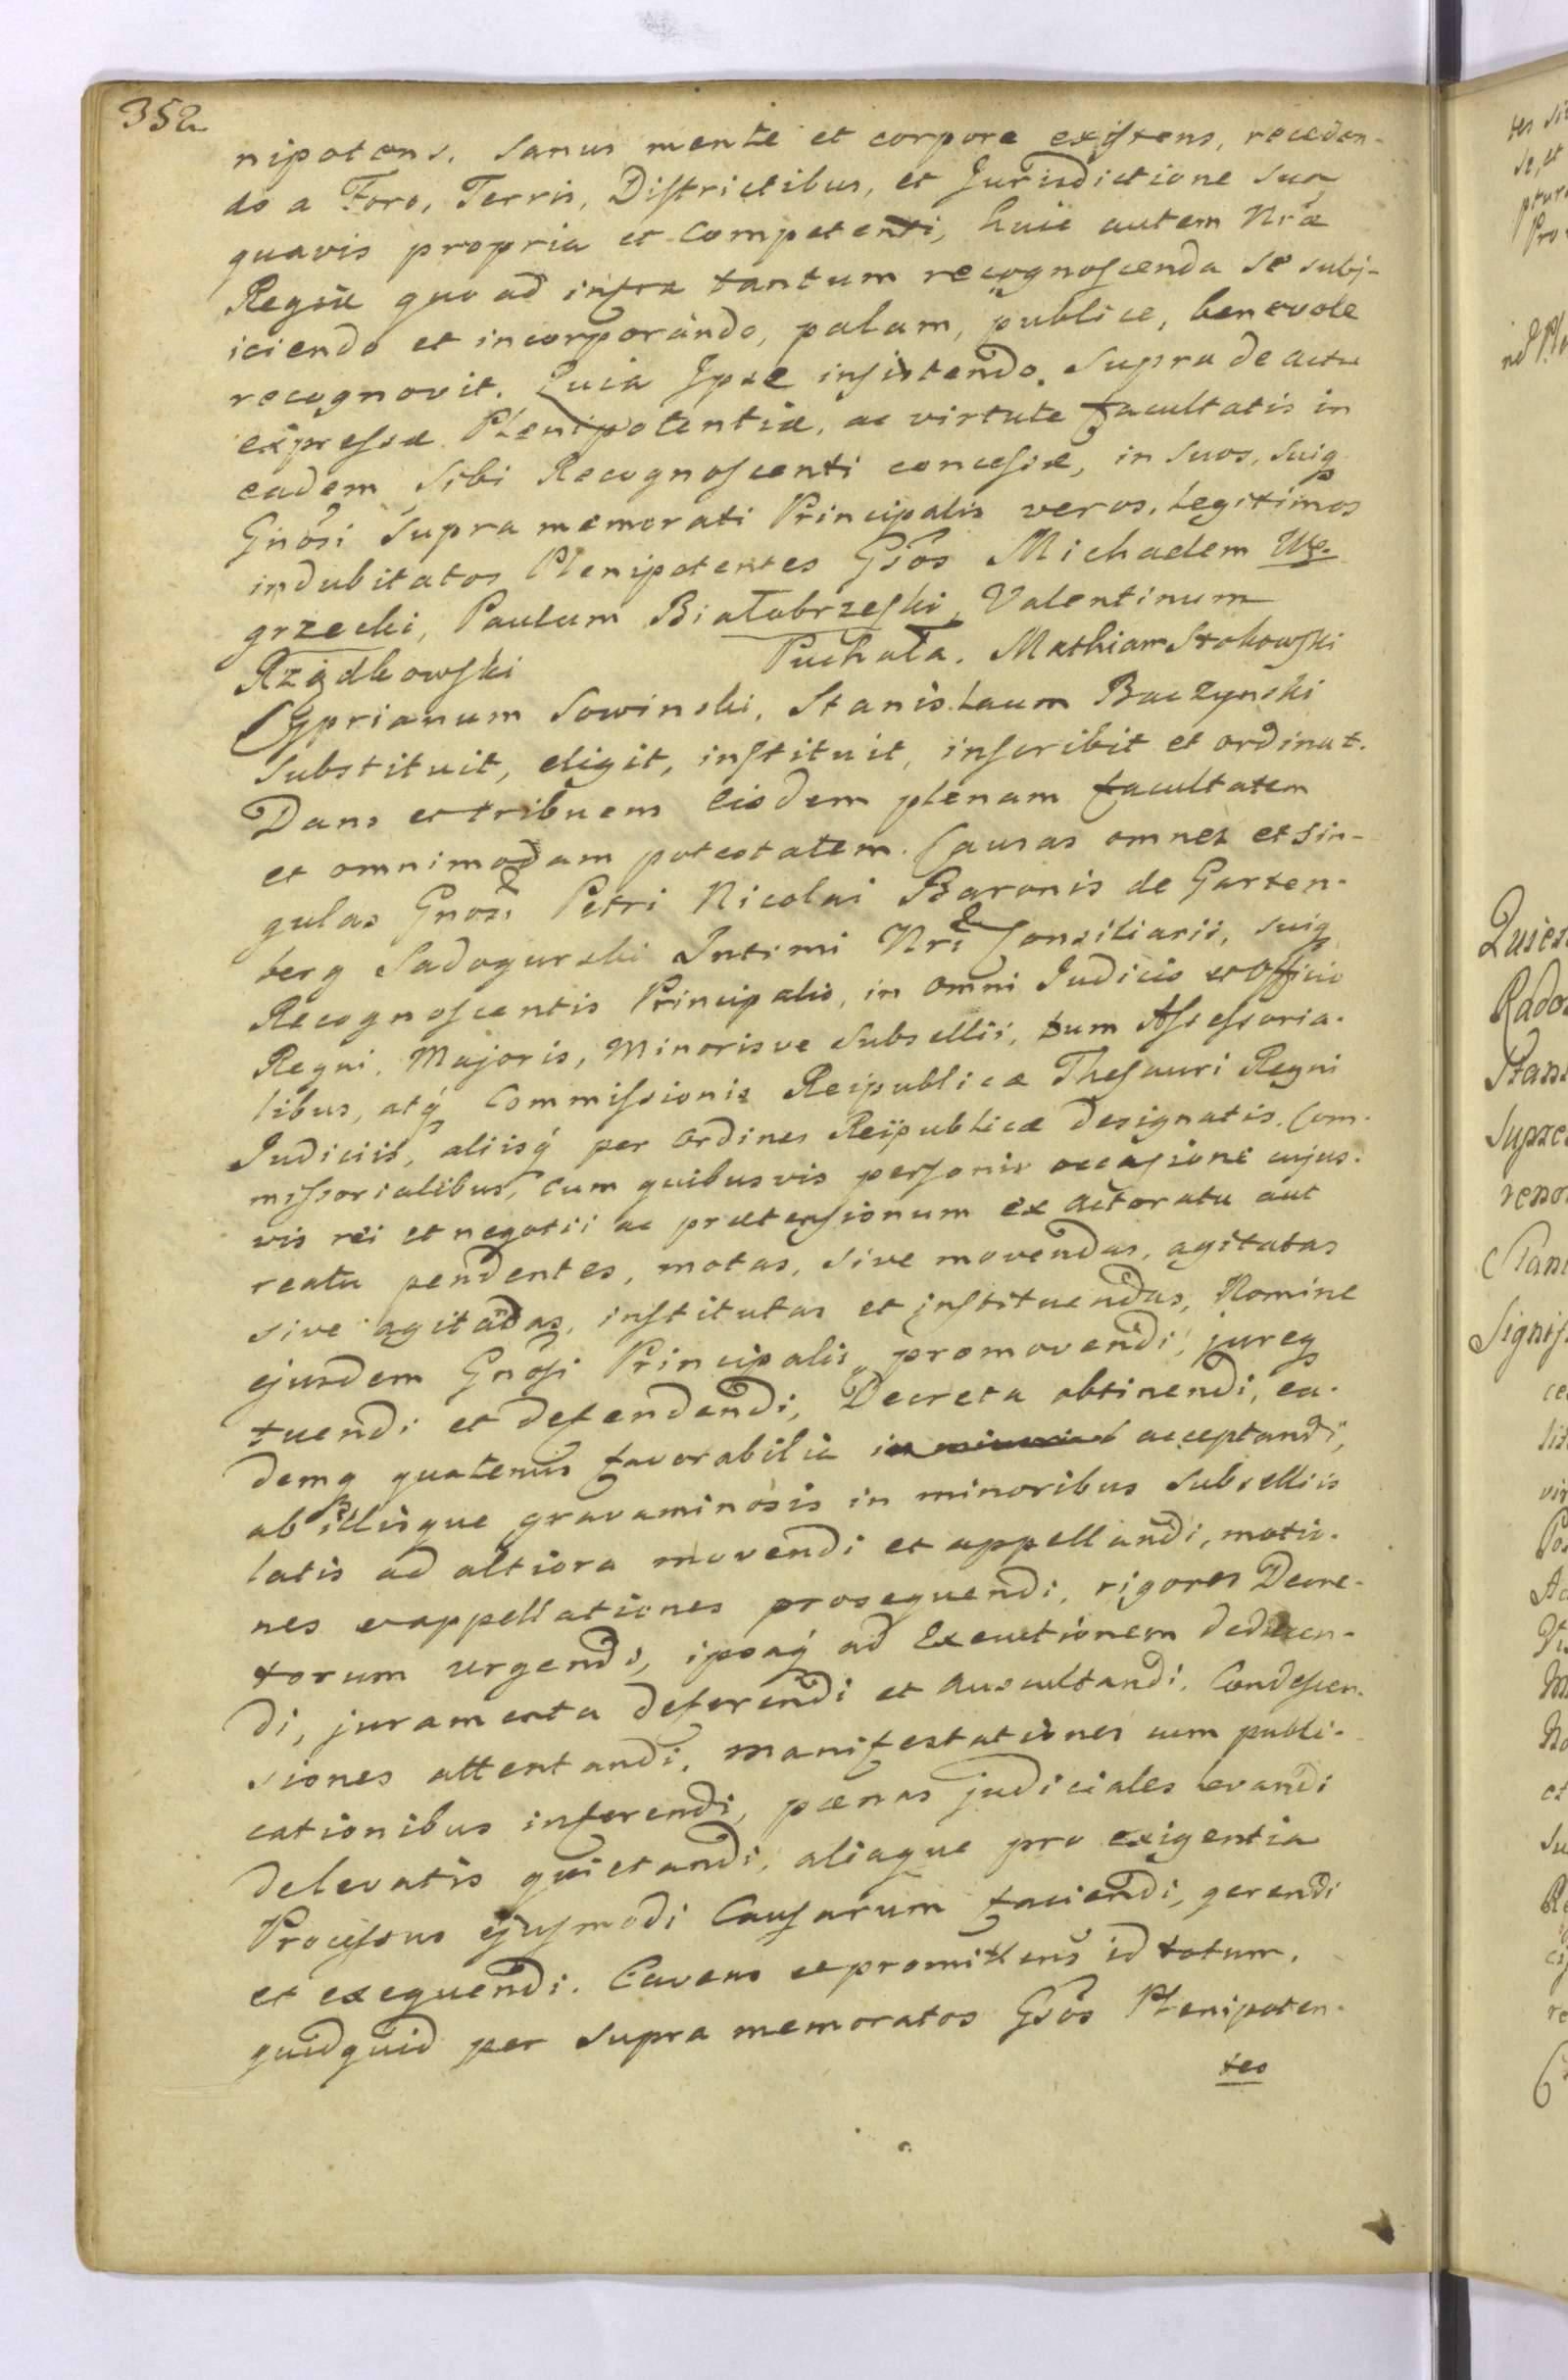 352
nipotens, sanus mente et corpore existens, receden-
do a Foro, Terris, Districtibus, et Jurisdictione sua
quavis propria et competenti, huic autem Nræ
Regiæ quo ad infra tantum recognoscenda se subj-
iciendo et incorporando, palam, publice, benevole
recognovit. Quia Ipse insistendo supra de actu
expressæ Plenipotentiæ, ac virtute facultatis in
eadem sibi Recognoscenti concessæ, in suos, suiq
Gnosi supra memorati Principalis veros, legitimos
indubitatos Plenipotentes Gsos Michaelem We-
grzecki, Paulum Białobrzeski, Valentinum
Rządkowski Puchała. Mathiam Stokowski
Cyprianum Sowinski, Stanislaum Baczynski
substituit, eligit, instituit, inscribit et ordinat.
Dans et tribuens eisdem plenam facultatem
et omnimodam potestatem. Causas omnes et sin-
gulas Gnosi Petri Nicolai Baronis de Garten-
berg Sadogurski Intimi Nri Consiliarii, suiq
Recognoscentis Principalis, in omni Judicio et Officio
Regni, Majoris, Minorisve Subsellii, tum Assessoria-
libus, atq Commissionis Reipublicæ Thesauri Regni
Judiciis, aliisq per Ordines Reipublicæ designatis, Com-
missorialibus, cum quibusvis personis occasione cujus-
vis rei et negotii ac prætensionum ex actoratu aut
reatu pendentes, motas, sive movendas, agitatas
sive agitādas, institutas et instituendas, Nomine
ejusdem Gnosi Principalis promovendi, jureq
tuendi et defendendi, Decreta obtinendi, ea-
demq quatenus favorabilia acceptandi,
ab illisque gravaminosis in minoribus subselliis
latis ad altiora movendi et appellandi, motio-
nes et appellationes prosequendi, rigores Decre-
torum urgendi, ipsaq ad Executionem deducen-
di, juramenta deferendi et auscultandi, Condescen-
siones attentandi, manifestationes cum publi-
cationibus inferendi, pœnas judiciales levandi
de levatis quietandi, aliaque pro exigentia
Processus ejusmodi Causarum faciendi, gerendi
et exequendi. Cavens et promittens id totum,
quidquid per supra memoratos Gsos Plenipoten-
tes